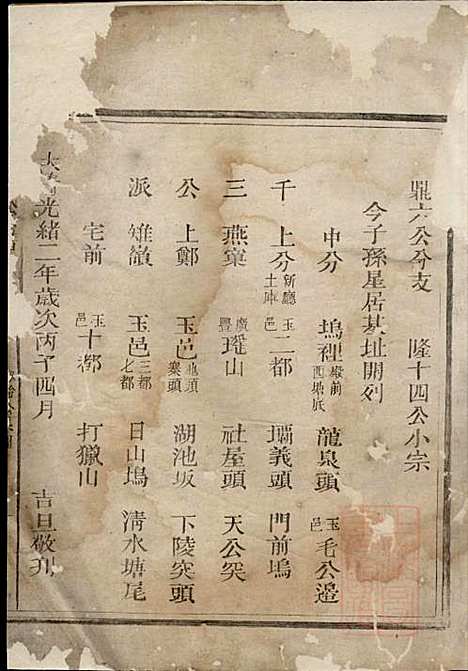 鼎六公分支 隆十四公小宗
今子孫星居基址開列
中分 塢裡 嶺前 西塘底 龍泉頭 玉邑 毛公邉
千 上分 新廳 土庫 玉邑 二都 壩義頭 門前塢
三 燕窠 廣豐 瑤山 社屋頭 天公突
公 上鄭 玉邑 寨頭 湖池坂 下陵突頭
派 雉嶺 玉邑 三都 七都 日山塢 清水塘尾
宅前 玉邑 十都 打獵山
大 光緒二年歲次丙子四月 吉旦敬刊